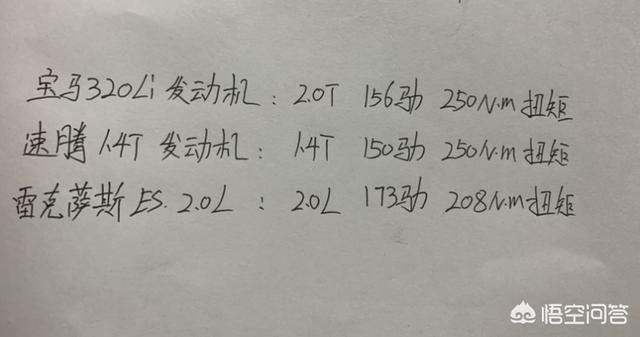 宝马320Li 发动机： 2.0T 156马力 250N.m 扭矩
速腾 1.4T 发动机： 1.4T 150马力 250N.m 扭矩
雷克萨斯 ES. 2.0L ： 2.0L 173马力 208N.m 扭矩
悟空问答